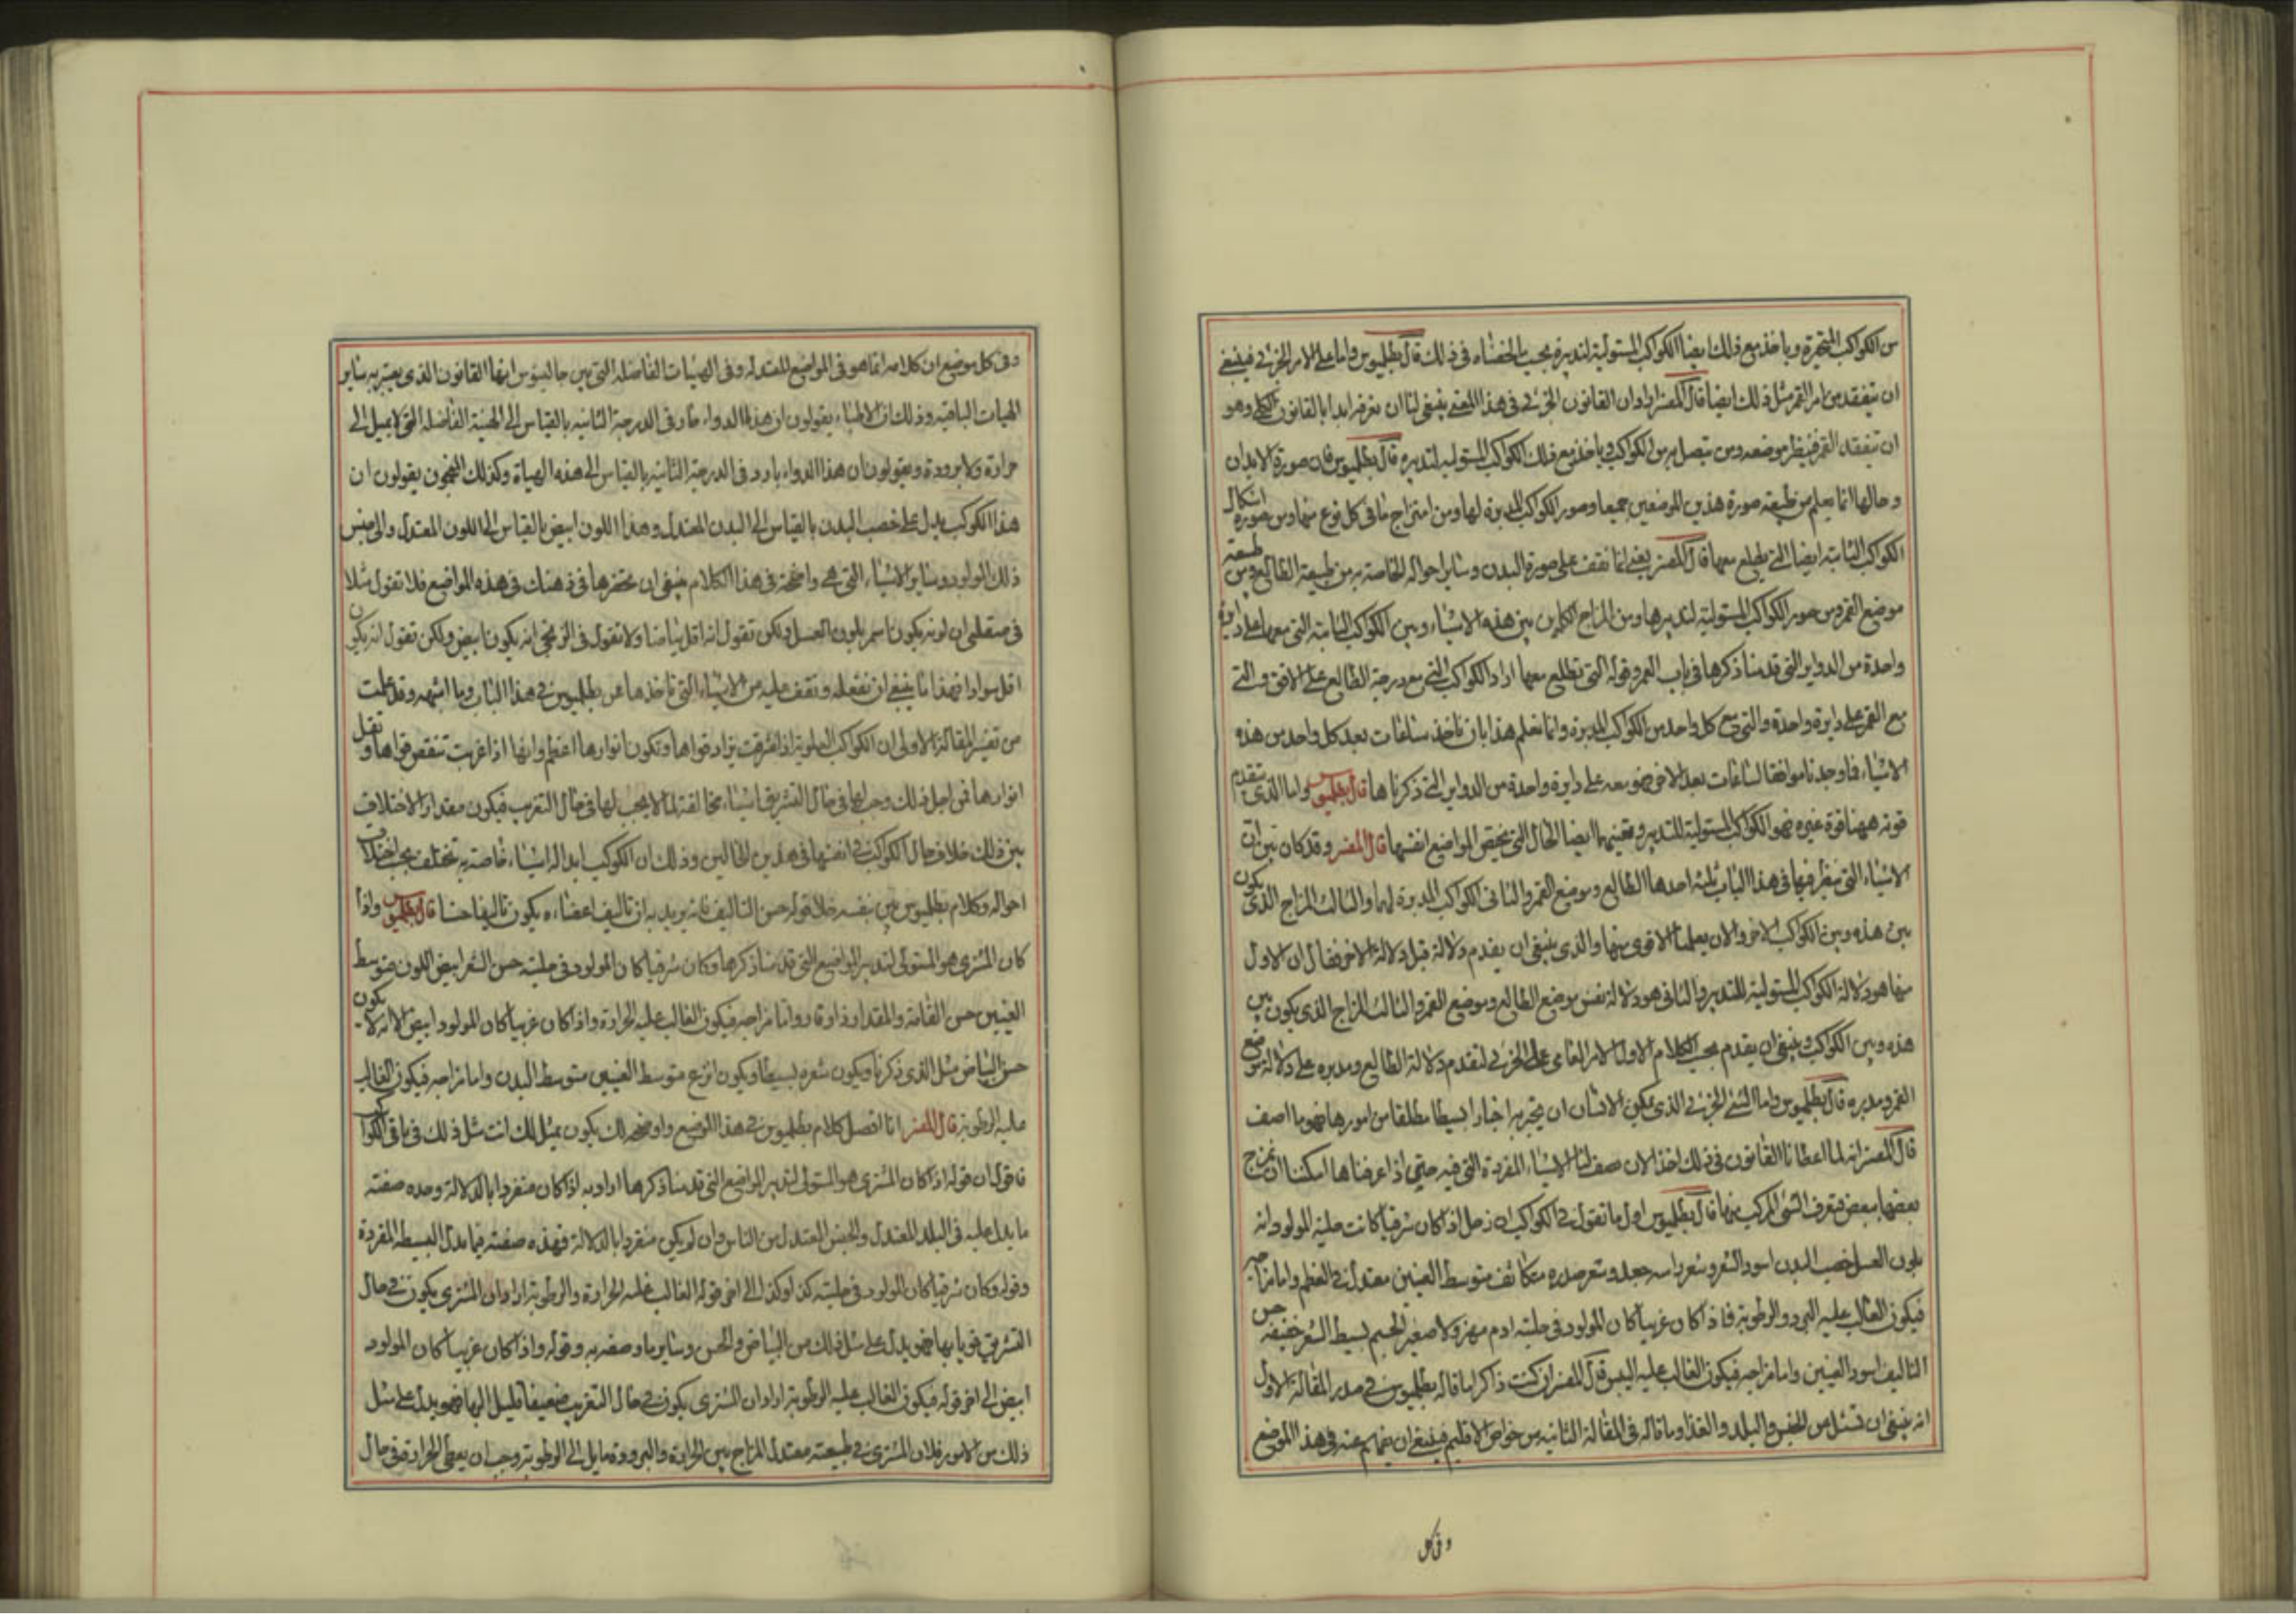 من الكواكب المتحيرة وياخذ مع ذلك ايضا الكواكب المستولية لتدبيره بحسب ما لخصناه في ذلك قال بطلميوس واما على الامر الجزئي فينبغي
ان يتفقد من امر القمر مثل ذلك ايضا قال المفسر اراد ان القانون الجزئي في هذا المعنى ينبغي لنا ان نعرفه ابدا بالقانون الكلي وهو
ان يتفقد القمر فينظر موضعه ومن يتصل به من الكواكب وياخذ مع ذلك الكواكب المستولية لتدبيره قال بطلميوس فان صورة الابدان
وحالها انما يعلم من طبيعة صورة هذين الموضعين جميعا وصور الكواكب المدبرة لها ومن امتزاج ما في كل نوع منها ومن صورة اشكال
الكواكب الثابتة ايضا التي يطلع معها قال المفسر يعني انما نقف على صورة البدن وسائر احواله الخاصة به من طبيعة الطالع ومن طبيعة
موضع القمر ومن صور الكواكب المستولية لتدبيرها ومن المزاج الكاين بين هذه الاشياء وبين الكواكب الثابتة التي معها على دايرة
واحدة من الدواير التي قدمنا ذكرها في باب العمر وقوله التي تطلع معها اراد الكواكب التي مع درجة الطالع على الافق والتي
مع القمر على دايرة واحدة والتي مع كل واحد من الكواكب المدبرة وانما نعلم هذا بان ناخذ ساعات بعد كل واحد من هذه
الاشياء فما وجدناه موافقا لساعات بعد الاخر فهو معه على دايرة واحدة من الدواير التي ذكرناها قال بطلميوس واما الذي يتقدم
قوته ههنا قوة غيره فهو الكواكب المستولية للتدبير ويعينهما ايضا الحال التي تخص المواضع انفسها قال المفسر وقد كان تبين ان
الاشياء التي ينظر فيها في هذا الباب ثلثة احدها الطالع وموضع القمر والثاني الكواكب المدبرة لهما والثالث المزاج الذي يكون
بين هذه وبين الكواكب الاخر والان يعلمنا الاقوى منها والذي ينبغي ان يقدم دلالة قبل دلالة الاخر فقال ان الاول
منها هو دلالة الكواكب المستولية للتدبير والثاني هو دلالة نفس موضع الطالع وموضع القمر والثالث المزاج الذي يكون بين
هذه وبين الكواكب وينبغي ان يقدم بحسب الكلام الاول الامر العامي على الجزئي لتقدم دلالة الطالع ومدبره على دلالة موضع
القمر ومدبره قال بطلميوس واما الشيء الجزئي الذي يمكن الانسان ان يخبر به اخبارا بسيطا مطلقا من امورها فهو ما اصف
قال المفسر انه لما اعطانا القانون في ذلك اخذ الان يصف لنا الاشياء المفردة التي فيه حتى اذا عرفناها امكننا ان نمزج
بعضها ببعض فتعرف الشيء المركب منها قال بطلميوس اول ما نقول في الكواكب ان زحل اذا كان شرقيا كانت حلية المولود انه
بلون العسل خصب البدن اسود الشعر وشعر راسه جعد وشعر صدره متكاثف متوسط العينين معتدل في العظم واما مزاجه
فيكون الغالب عليه البرد والرطوبة فاذا كان غربيا كان المولود في حليته ادم مهزولا صغير الجسم بسيط الشعر خفيفه حسن
التاليف اسود العينين واما مزاجه فيكون الغالب عليه اليبس قال المفسر ان كنت ذاكرا لما قاله بطلميوس في صدر المقالة الاولى
انه ينبغي ان تسئل من الجنس والبلد والغذاء وما قاله في المقالة الثانية من خواص الاقليم فينبغي ان يفهم عنه في هذا الموضع
وفي كل
وفي كل موضع ان كلامه انما هو في المواضع المعتدلة وفي الهيئات الفاضلة التي بين جالينوس انها القانون الذي يعتبر به ساير
الهيات الباقية وذلك ان الاطباء يقولون ان هذا الدواء حار في الدرجة الثانية بالقياس الى الهيئة الفاضلة التي لا يميل الى
حرارة ولا برودة ويقولون ان هذا الدواء بارد في الدرجة الثانية بالقياس الى هذه الهياة وكذلك المنجمون يقولون ان
هذا الكوكب يدل على خصب البدن بالقياس الى البدن المعتدل وهذا اللون ابيض بالقياس الى اللون المعتدل والى جنس
ذلك المولود وساير الاشياء التي هي واضحة في هذا الكلام فينبغي ان تحفزها في ذهنك في هذه المواضع فلا تقول مثلا
في صقلبي ان لونه يكون اسمر بلون العسل ولكن تقول انه اقل بياضا ولا تقول في الزنجي انه يكون ابيض ولكن تقول انه يكون
اقل سوادا فهذا ما ينبغي ان نفعله ونقف عليه من الاشياء التي ناخذها عن بطلميوس في هذا الباب وما اشبهه وقد علمت
من تفسير المقالة الاولى ان الكواكب العلوية اذا شرقت يزاد قواها وتكون انوارها اعظم وانها اذا غربت تنقص قواها وتقل
انوارها فمن اجل ذلك وجب لها في حال التشريق اشياء مخالفة لما لا يجب لها في حال التغريب فيكون مقدار الاختلاف
بين ذلك خلاف حال الكواكب في انفسها في هذين الحالين وذلك ان الكواكب ابدا لها اشياء خاصة به تختلف بحسب اختلاف
احواله وكلام بطلميوس بين بنفسه خلا قوله حسن التاليف فانه يريد به ان تاليف اعضاءه يكون تاليفا حسنا قال بطلميوس واذا
كان المشتري هو المستولي لتدبير المواضع التي قدمنا ذكرها وكان شرقيا كان المولود في حليته حسن الشعر ابيض اللون متوسط
العينين حسن القامة والمقدار ذا وقار واما مزاجه فيكون الغالب عليه الحرارة واذا كان غربيا كان المولود ابيض الا انه لا يكون
حسن البياض مثل الذي ذكرنا ويكون شعره بسيطا ويكون انزع متوسط العينين متوسط البدن واما مزاجه فيكون الغالب
عليه الرطوبة قال المفسر انا افصل كلام بطلميوس في هذا الموضع واوضحه لك يكون بمثل لك انت مثل ذلك في باقي الكواكب
فاقول ان قوله اذا كان المشتري هو المستولي لتدبير المواضع التي قدمنا ذكرها اراد به اذا كان منفردا بالدلالة وحده صفته
ما يدل عليه في البلد المعتدل والجنس المعتدل من الناس وان لم يكن منفردا بالدلالة فهذه صفته فيما يدل البسيطه المفردة
وقوله وكان شرقيا كان المولود في حليته كذا وكذا الى اخر قوله الغالب عليه الحرارة والرطوبة اراد ان المشتري يكون في حال
التشريق قويا بها فهو يدل على مثل ذلك من البياض والحسن وساير ما وصفه به وقوله واذا كان غربيا كان المولود
ابيض الى اخر قوله فيكون الغالب عليه الرطوبة اراد ان المشتري يكون في حال التغريب ضعيفا قليل البها فهو يدل على مثل
ذلك من الامور فلان المشتري في طبيعته معتدل المزاج بين الحرارة والبرودة مايل الى الرطوبة وجب ان يعطي الحرارة في حال